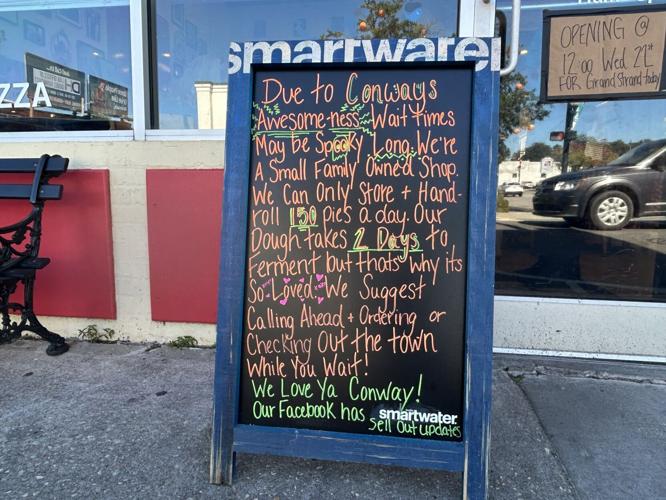 smartwater
Due to Conways
Awesome-ness Wait Times
May be Spooky Long. We're
A Small Family Owned Shop.
We Can Only Store + Hand-
roll 150 pies a day. Our
Dough takes 2 Days to
Ferment but thats why its
So Loved We Suggest
Calling Ahead + Ordering or
Checking Out the town
While You Wait!
We Love Ya Conway!
Our Facebook has
smartwater
Sell Out updates
ZZA
OPENING @
12:00 Wed 21st
FOR Grand Strand today